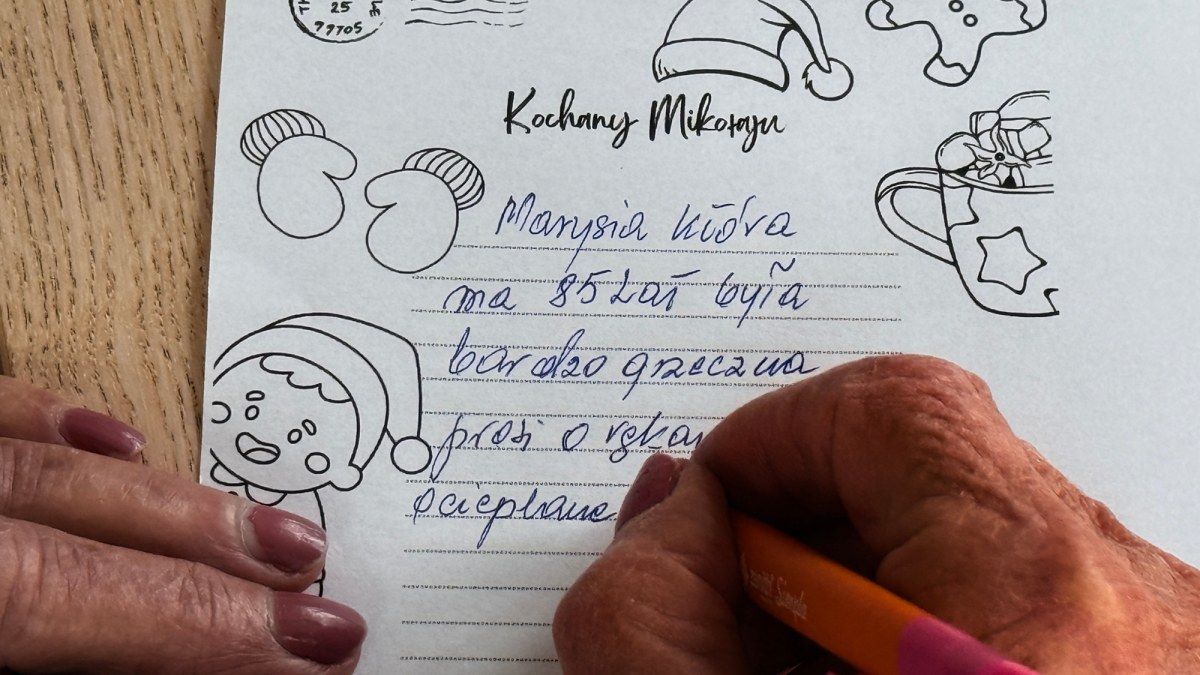 25
99705
Kochany Mikołaju
Marysia która
ma 85 lat była
bardzo grzeczna
prosi o
ocieplane